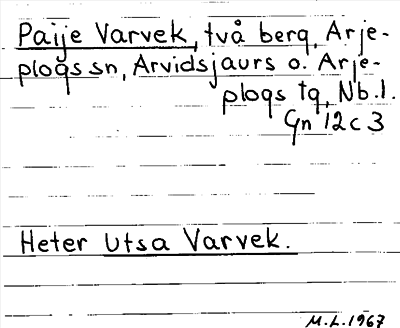 Paije Varvek, två berg, Arje-
plogs sn, Arvidsjaurs o. Arje-
plogs tg, Nb.l.
Gn 12c3
Heter Utsa Varvek.
M.L.1967